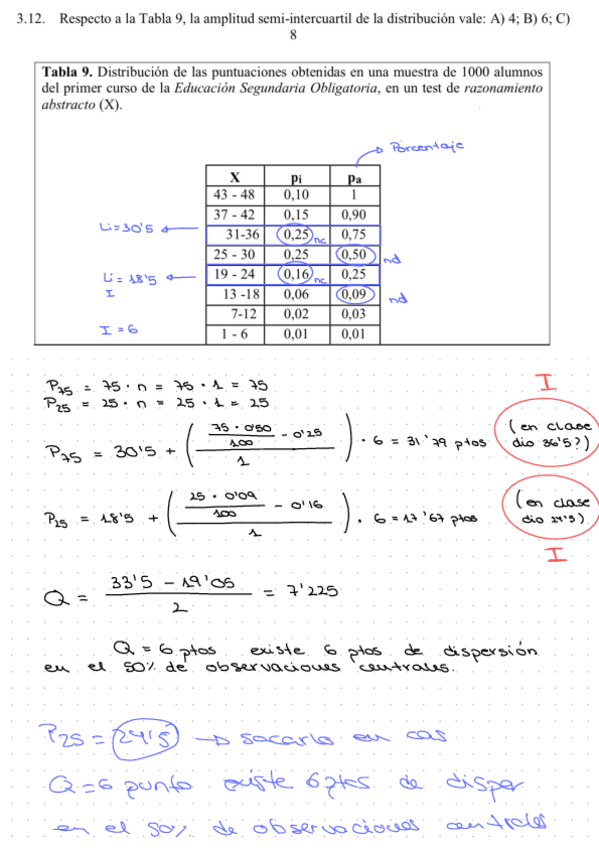 3.12. Respecto a la Tabla 9, la amplitud semi-intercuartil de la distribución vale: A) 4; B) 6; C)
8
Tabla 9. Distribución de las puntuaciones obtenidas en una muestra de 1000 alumnos
del primer curso de la Educación Segundaria Obligatoria, en un test de razonamiento
abstracto (X).
Porcentaje
X pi pa
43 - 48 0,10 1
37 - 42 0,15 0,90
Li=30'5 31-36 0,25 nc 0,75
25 - 30 0,25 0,50 nd
Li = 18'5 19 - 24 0,16 nc 0,25
I 13 -18 0,06 0,09 nd
7-12 0,02 0,03
I = 6 1 - 6 0,01 0,01
P75 = 75 · n = 75 · 1 = 75
P25 = 25 · n = 25 · 1 = 25
I
P75 = 30'5 + ( 75 · 0'50 / 100 - 0'25 / 1 ) · 6 = 31'79 ptos (en clase dio 36'5?)
P25 = 18'5 + ( 25 · 0'09 / 100 - 0'16 / 1 ) · 6 = 17'67 ptos (en clase dio 24'5)
I
Q = 33'5 - 19'05 / 2 = 7'225
Q = 6 ptos existe 6 ptos de dispersión
en el 50% de observaciones centrales.
P25 = 24'5 → sacarlo en cas
Q = 6 punto existe 6 ptos de disper
en el 50% de observaciones centrales